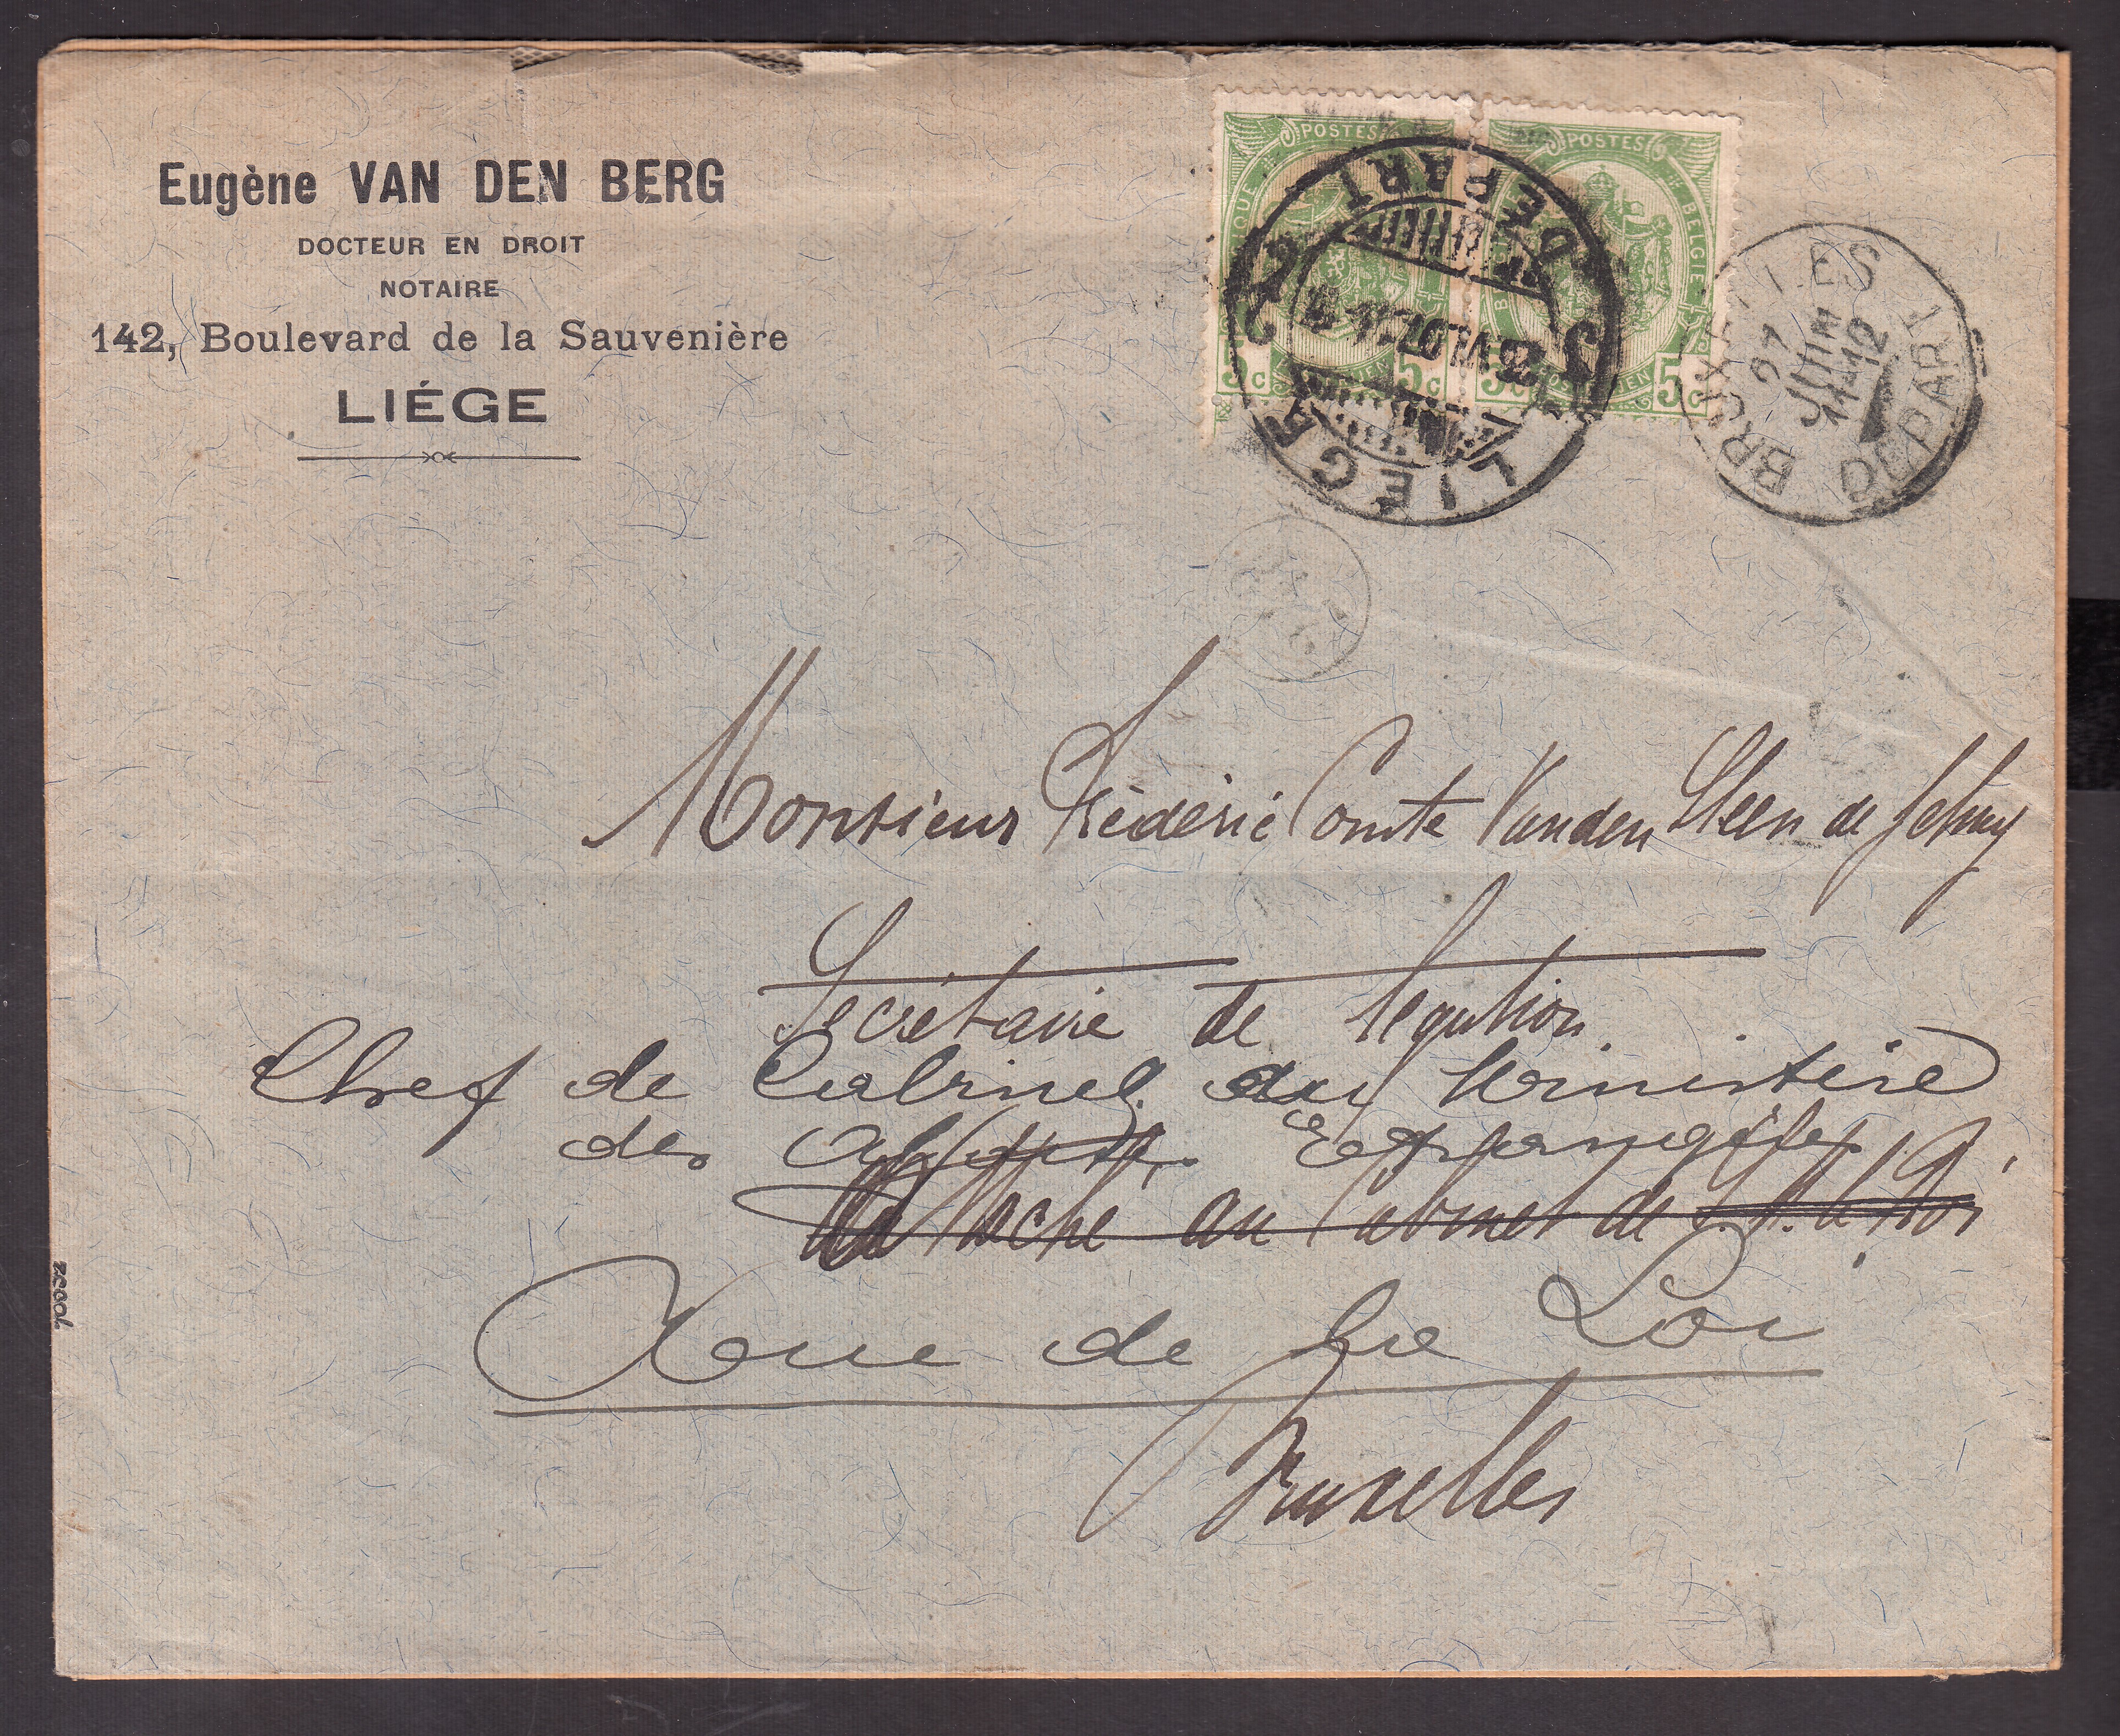 Eugène VAN DEN BERG
DOCTEUR EN DROIT
NOTAIRE
142, Boulevard de la Sauvenière
LIÉGE
POSTES
POSTES
BELGIE
5c 5c 5c
LIÈGE
DÉPART
BRUXELLES
21
JUIN
11-12
DÉPART
Monsieur Frédéric Comte Vanden Steen de Jehay
Secrétaire de légation
Chef de Cabinet du Ministère
des Affaires Etrangères
Attaché au Cabinet de S. M. le Roi
Rue de la Loi
Bruxelles